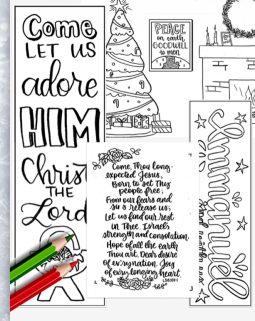 Come
LET US
adore
HIM
Christ
THE
Lord
PEACE
on earth
GOODWILL
to men
Come, Thou long
expected Jesus,
Born to set Thy
people free;
From our fears and
sins release us;
Let us find our rest
in Thee. Israel's
strength and consolation,
Hope of all the earth
Thou art. Dear desire
of every nation, Joy
of every longing heart.
Immanuel